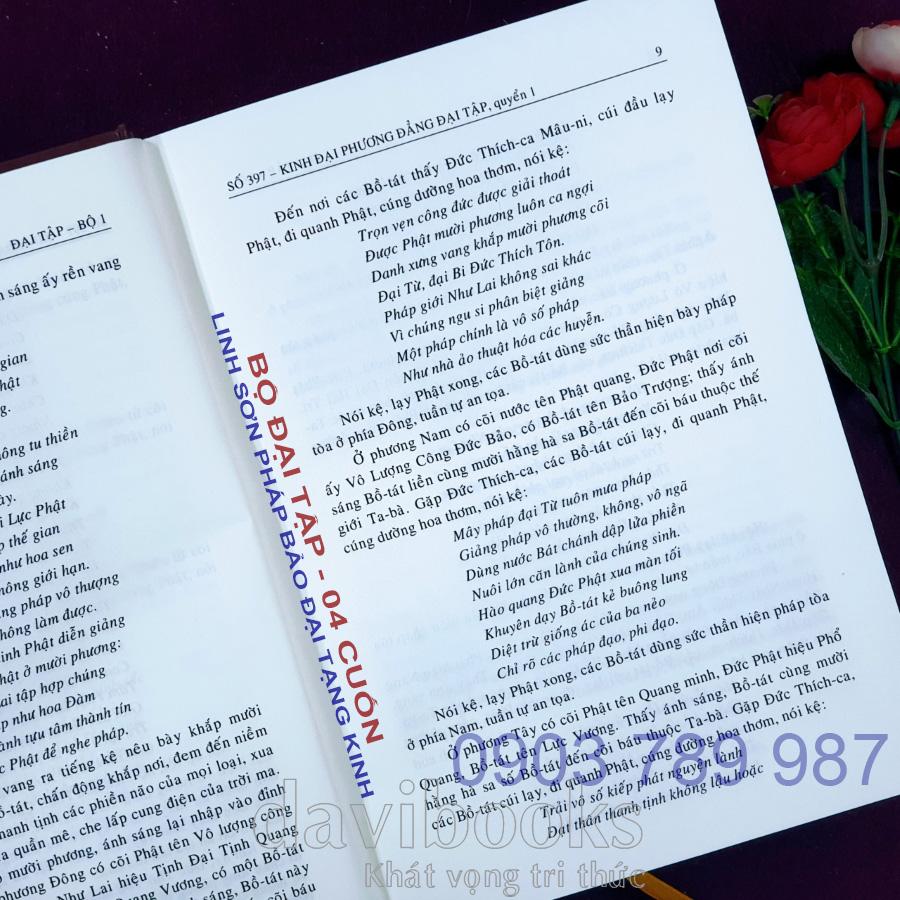 ĐẠI TẬP – BỘ 1
sáng ấy rền vang
gian
hật
g.
ông tu thiền
ánh sáng
ày.
i Lực Phật
p thế gian
như hoa sen
hông giới hạn.
ng pháp vô thượng
hông làm được.
inh Phật diễn giảng
hật ở mười phương:
ai tập hợp chúng
p như hoa Đàm
ành tựu tâm thành tín
c Phật để nghe pháp.
vang ra tiếng kệ nêu bày khắp mười
ồ-tát, chấn động khắp nơi, đem đến niềm
hanh tịnh các phiền não của mọi loại, xua
a quần mê, che lấp cung điện của trời ma.
p mười phương, ánh sáng lại nhập vào đỉnh
phương Đông có cõi Phật tên Vô lượng công
Như Lai hiệu Tịnh Đại Tịnh Quang
Quang Vương, có một Bồ-tát
nh sáng, Bồ-tát này
cõi báu
9
SỐ 397 – KINH ĐẠI PHƯƠNG ĐẲNG ĐẠI TẬP, quyển 1
Đến nơi các Bồ-tát thấy Đức Thích-ca Mâu-ni, cúi đầu lạy
Phật, đi quanh Phật, cúng dường hoa thơm, nói kệ:
Trọn vẹn công đức được giải thoát
Được Phật mười phương luôn ca ngợi
Danh xưng vang khắp mười phương cõi
Đại Từ, đại Bi Đức Thích Tôn.
Pháp giới Như Lai không sai khác
Vì chúng ngu si phân biệt giảng
Một pháp chính là vô số pháp
Như nhà ảo thuật hóa các huyễn.
Nói kệ, lạy Phật xong, các Bồ-tát dùng sức thần hiện bày pháp
tòa ở phía Đông, tuần tự an tọa.
Ở phương Nam có cõi nước tên Phật quang, Đức Phật nơi cõi
ấy Vô Lượng Công Đức Bảo, có Bồ-tát tên Bảo Trượng; thấy ánh
sáng Bồ-tát liền cùng mười hằng hà sa Bồ-tát đến cõi báu thuộc thế
giới Ta-bà. Gặp Đức Thích-ca, các Bồ-tát cúi lạy, đi quanh Phật,
cúng dường hoa thơm, nói kệ:
Mây pháp đại Từ tuôn mưa pháp
Giảng pháp vô thường, không, vô ngã
Dùng nước Bát chánh dập lửa phiền
Nuôi lớn căn lành của chúng sinh.
Hào quang Đức Phật xua màn tối
Khuyên dạy Bồ-tát kẻ buông lung
Diệt trừ giống ác của ba nẻo
Chỉ rõ các pháp đạo, phi đạo.
Nói kệ, lạy Phật xong, các Bồ-tát dùng sức thần hiện pháp tòa
ở phía Nam, tuần tự an tọa.
Ở phương Tây có cõi Phật tên Quang minh, Đức Phật hiệu Phổ
Quang, Bồ-tát tên Lực Xưng. Thấy ánh sáng, Bồ-tát cùng mười
hằng hà sa số Bồ-tát đến cõi báu thuộc Ta-bà. Gặp Đức Thích-ca,
các Bồ-tát cúi lạy, đi quanh Phật, cúng dường hoa thơm, nói kệ:
Trải vô số kiếp phát nguyện lành
Đạt thân thanh tịnh không lậu hoặc
BỘ ĐẠI TẬP - 04 CUỐN
LINH SƠN PHÁP BẢO ĐẠI TẠNG KINH
0903 789 987
davibooks
Khát vọng tri thức